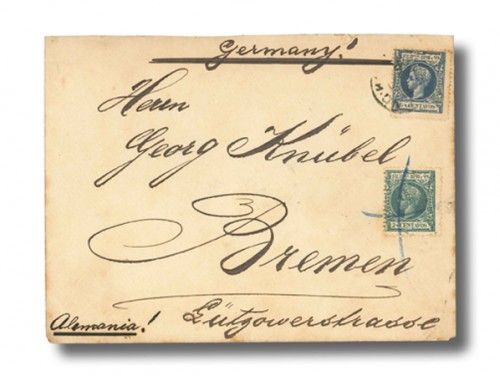 Germany!
Herrn
Georg Knübel
Bremen
Lützowerstrasse
Alemania!